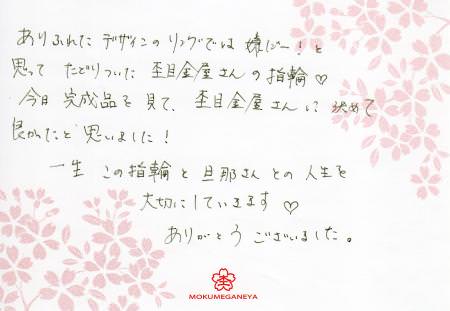 ありふれたデザインのリングでは嫌だー！と
思ってたどりついた杢目金屋さんの指輪♡
今日完成品を見て、杢目金屋さんに決めて
良かったと思いました！
一生この指輪と旦那さんとの人生を
大切にしていきます♡
ありがとうございました。
MOKUMEGANEYA